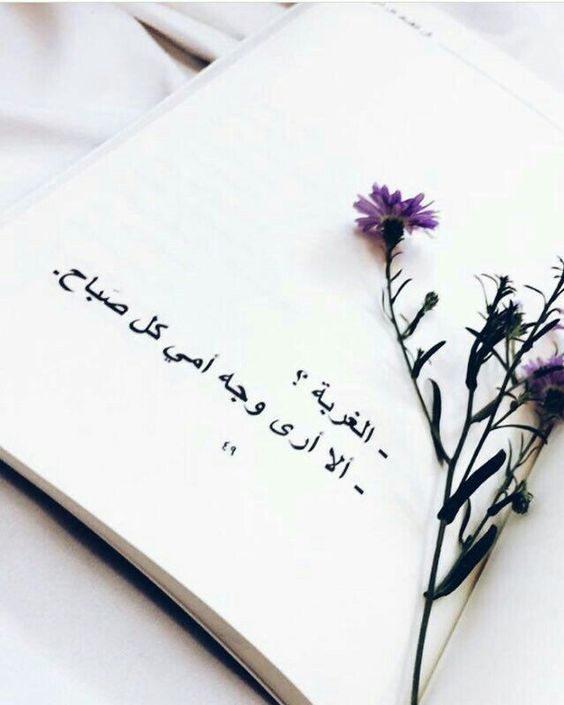 - الغربة ؟
- ألا أرى وجه أمي كل صَباح.
٤٩